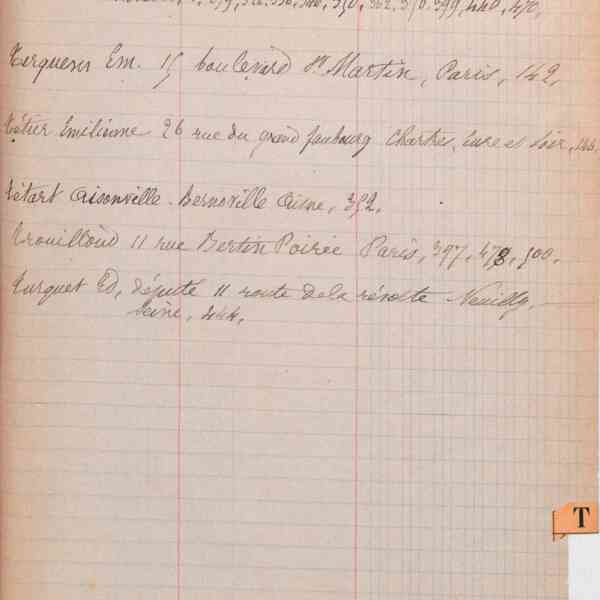 1, 279, 326, 336, 340, 350, 362, 370, 399, 440, 470,
Terquem Em. 15 boulevard St Martin, Paris, 142,
Tétier Emilienne 26 rue du grand faubourg Chartres, Eure et Loir, 144,
Tétart Aisonville-Bernoville Aisne, 392,
Trouilloud 11 rue Bertin Poirée Paris, 397, 478, 500,
Turquet Ed, député 11 route de la révolte Neuilly,
Seine, 444,
T